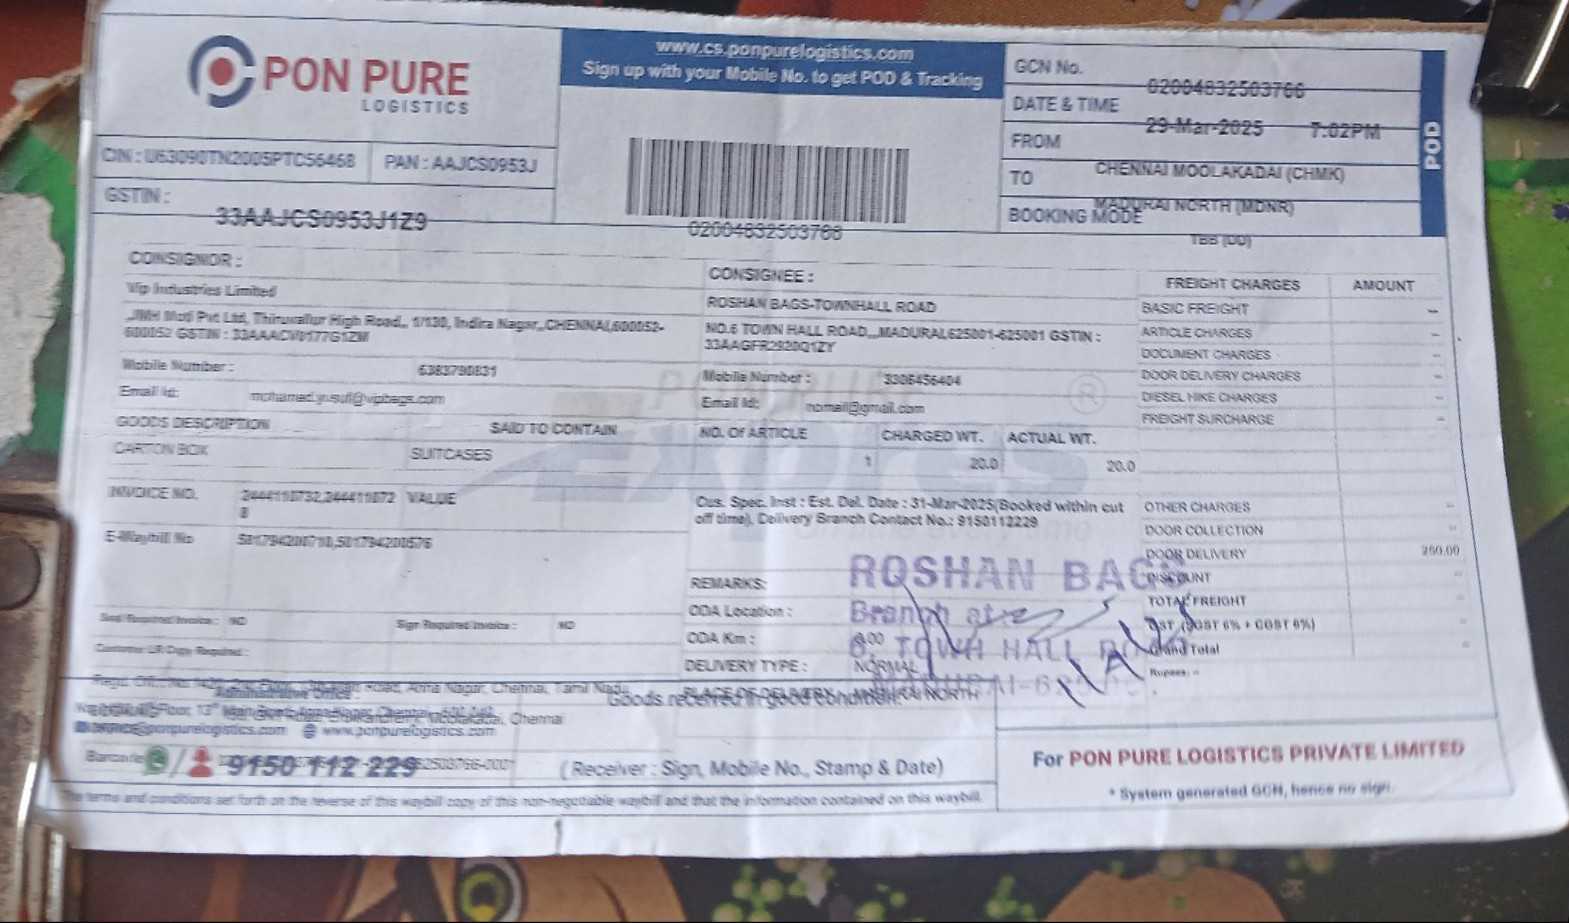 PON PURE
LOGISTICS
www.cs.ponpurelogistics.com
Sign up with your Mobile No. to get POD & Tracking
GCN No.
02004832503766
DATE & TIME
29-Mar-2025 7:02PM
FROM
CHENNAI MOOLAKADAI (CHMK)
TO
MADURAI NORTH (MDNR)
BOOKING MODE
TBB (DD)
POD
CIN : U63090TN2005PTC56468
PAN : AAJCS0953J
GSTIN :
33AAJCS0953J1Z9
02004832503766
CONSIGNOR :
Vip Industries Limited
Pvt Ltd, Thiruvallur High Road,, 1/130, Indira Nagar,,CHENNAI,600052-
600052 GSTIN : 33AAACV0177G1ZM
Mobile Number : 6383790831
Email Id: mohamed.yusuf@vipbags.com
CONSIGNEE :
ROSHAN BAGS-TOWNHALL ROAD
NO.6 TOWN HALL ROAD,,,MADURAI,625001-625001 GSTIN :
33AAGFR2920Q1ZY
Mobile Number : 3306456404
Email Id: nomail@gmail.com
FREIGHT CHARGES AMOUNT
BASIC FREIGHT --
ARTICLE CHARGES --
DOCUMENT CHARGES --
DOOR DELIVERY CHARGES --
DIESEL HIKE CHARGES --
FREIGHT SURCHARGE --
GOODS DESCRIPTION SAID TO CONTAIN
CARTON BOX SUITCASES
NO. Of ARTICLE CHARGED WT. ACTUAL WT.
1 20.0 20.0
INVOICE NO. VALUE
E-Waybill No
Cus. Spec. Inst : Est. Del. Date : 31-Mar-2025(Booked within cut
off time), Delivery Branch Contact No.: 9150112229
OTHER CHARGES --
DOOR COLLECTION --
DOOR DELIVERY 250.00
DISCOUNT --
TOTAL FREIGHT
GST (SGST 6% + CGST 6%)
Grand Total
Rupees: --
REMARKS:
ODA Location :
ODA Km : 0.00
DELIVERY TYPE : NORMAL
PLACE OF DELIVERY MADURAI NORTH
ROSHAN BAGS
Branch at:
6, TOWN HALL
Seal Required Invoice : NO
Sign Required Invoice : NO
Customer LR Copy Required :
Road, Anna Nagar, Chennai, Tamil Nadu
Administrative Office
Goods received in good condition.
www.ponpurelogistics.com
Barcode
9150 112 229
(Receiver : Sign, Mobile No., Stamp & Date)
For PON PURE LOGISTICS PRIVATE LIMITED
* System generated GCN, hence no sign.
terms and conditions set forth on the reverse of this waybill copy of this non-negotiable waybill and that the information contained on this waybill.